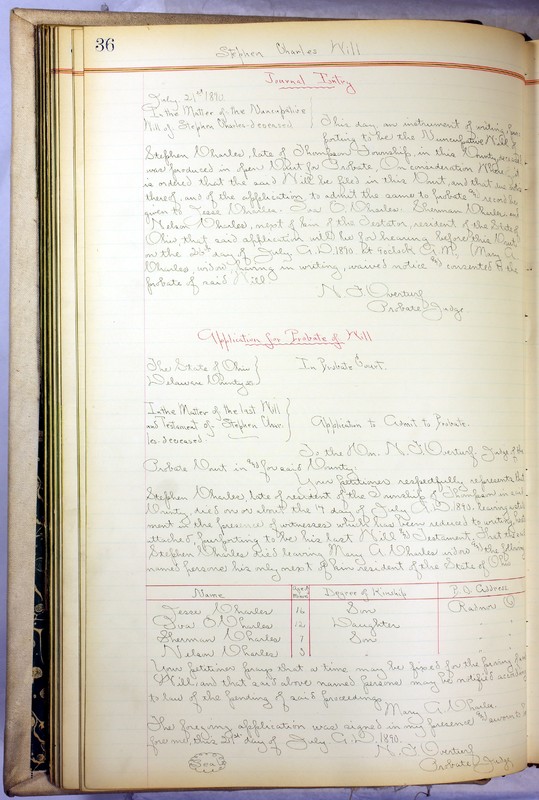 36
Stephen Charles Will
Journal Entry
July 21st 1890
In the Matter of the Nuncupative
Will of Stephen Charles deceased
This day an instrument of writing, pur-
porting to be the Nuncupative Will of
Stephen Charles, late of Thompson Township, in this County, deceased
was produced in Open Court for Probate, On consideration Where
is ordered that the said Will be filed in this Court, and that due notice
thereof, and of the application to admit the same to probate & record be
given to Jesse Charles. Iva O Charles. Sherman Charles and
Nelson Charles, next of kin of the Testator, resident of the State of
Ohio, that said application will be for hearing before this Court
on the day of July A.D. 1890. at 9 oclock A.M, (Mary A
Charles, widow, having in writing, waived notice & consented to the
probate of said Will
N. F. Overturf
Probate Judge
Application for Probate of Will
The State of Ohio
Delaware County ss
In Probate Court.
In the Matter of the last Will
and Testament of Stephen Char-
les. deceased.
Application to Admit to Probate.
To the Hon. N. F. Overturf Judge of the
Probate Court in & for said County
Your petitioner respectfully represents that
Stephen Charles, late of resident of the Township of Thompson in said
County, died on or about the 7 day of July A.D. 1890. leaving
ment in the presence of witnesses which has been reduced to writing,
attached, purporting to be his last Will & Testament, that the said
Stephen Charles died leaving Mary A Charles widow & the following
named persons his only next of kin resident of the State of Ohio
Name Degree of Kinship P.O. Address
Jesse Charles 16 Son Radnor O
Iva O Charles 12 Daughter "
Sherman Charles 7 Son "
Nelson Charles 3 " "
Your petitioner prays that a time may be fixed for the proving of said
Will and that said above named persons may be notified according
to law of the pending of said proceedings.
Mary A Charles.
The foregoing application was signed in my presence & sworn to be
fore me, this 21st day of July A.D. 1890.
N. F. Overturf
Probate Judge.
Seal